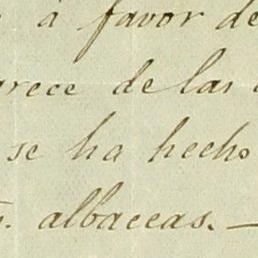 á favor de
arece de las
se ha hecho
s. albaceas.—